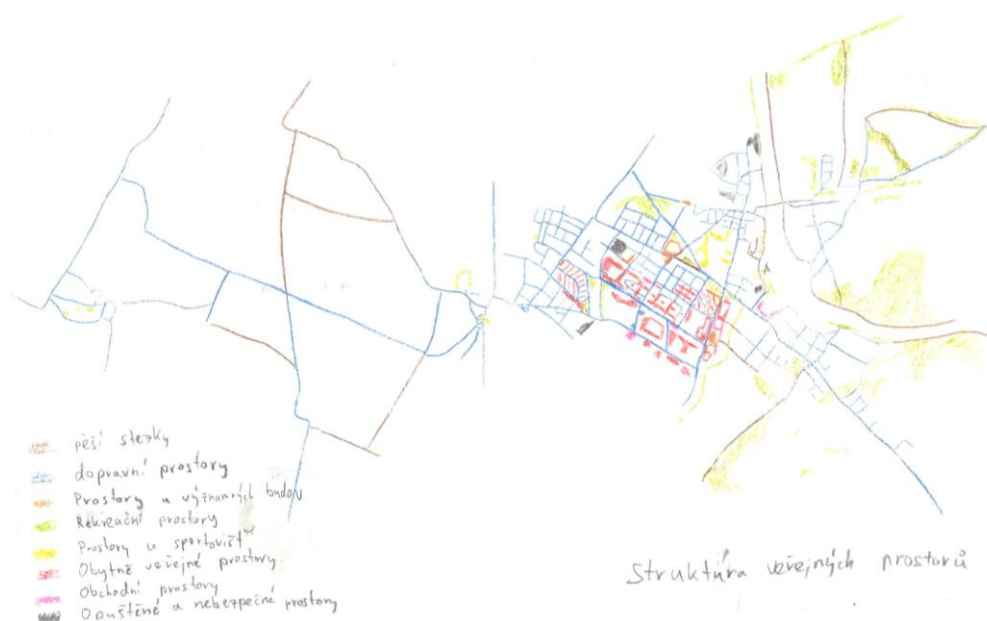 pěší stezky
dopravní prostory
Prostory u významných budov
Rekreační prostory
Prostory u sportovišť
Obytné veřejné prostory
Obchodní prostory
Opuštěné a nebezpečné prostory
Struktúra veřejných prostorů